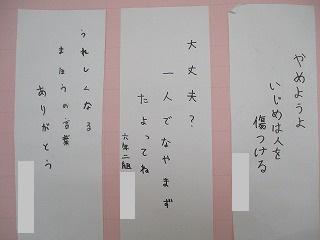 やめようよ
いじめは人を
傷つける
大丈夫？
一人でなやまず
たよってね
六年二組
うれしくなる
まほうの言葉
ありがとう